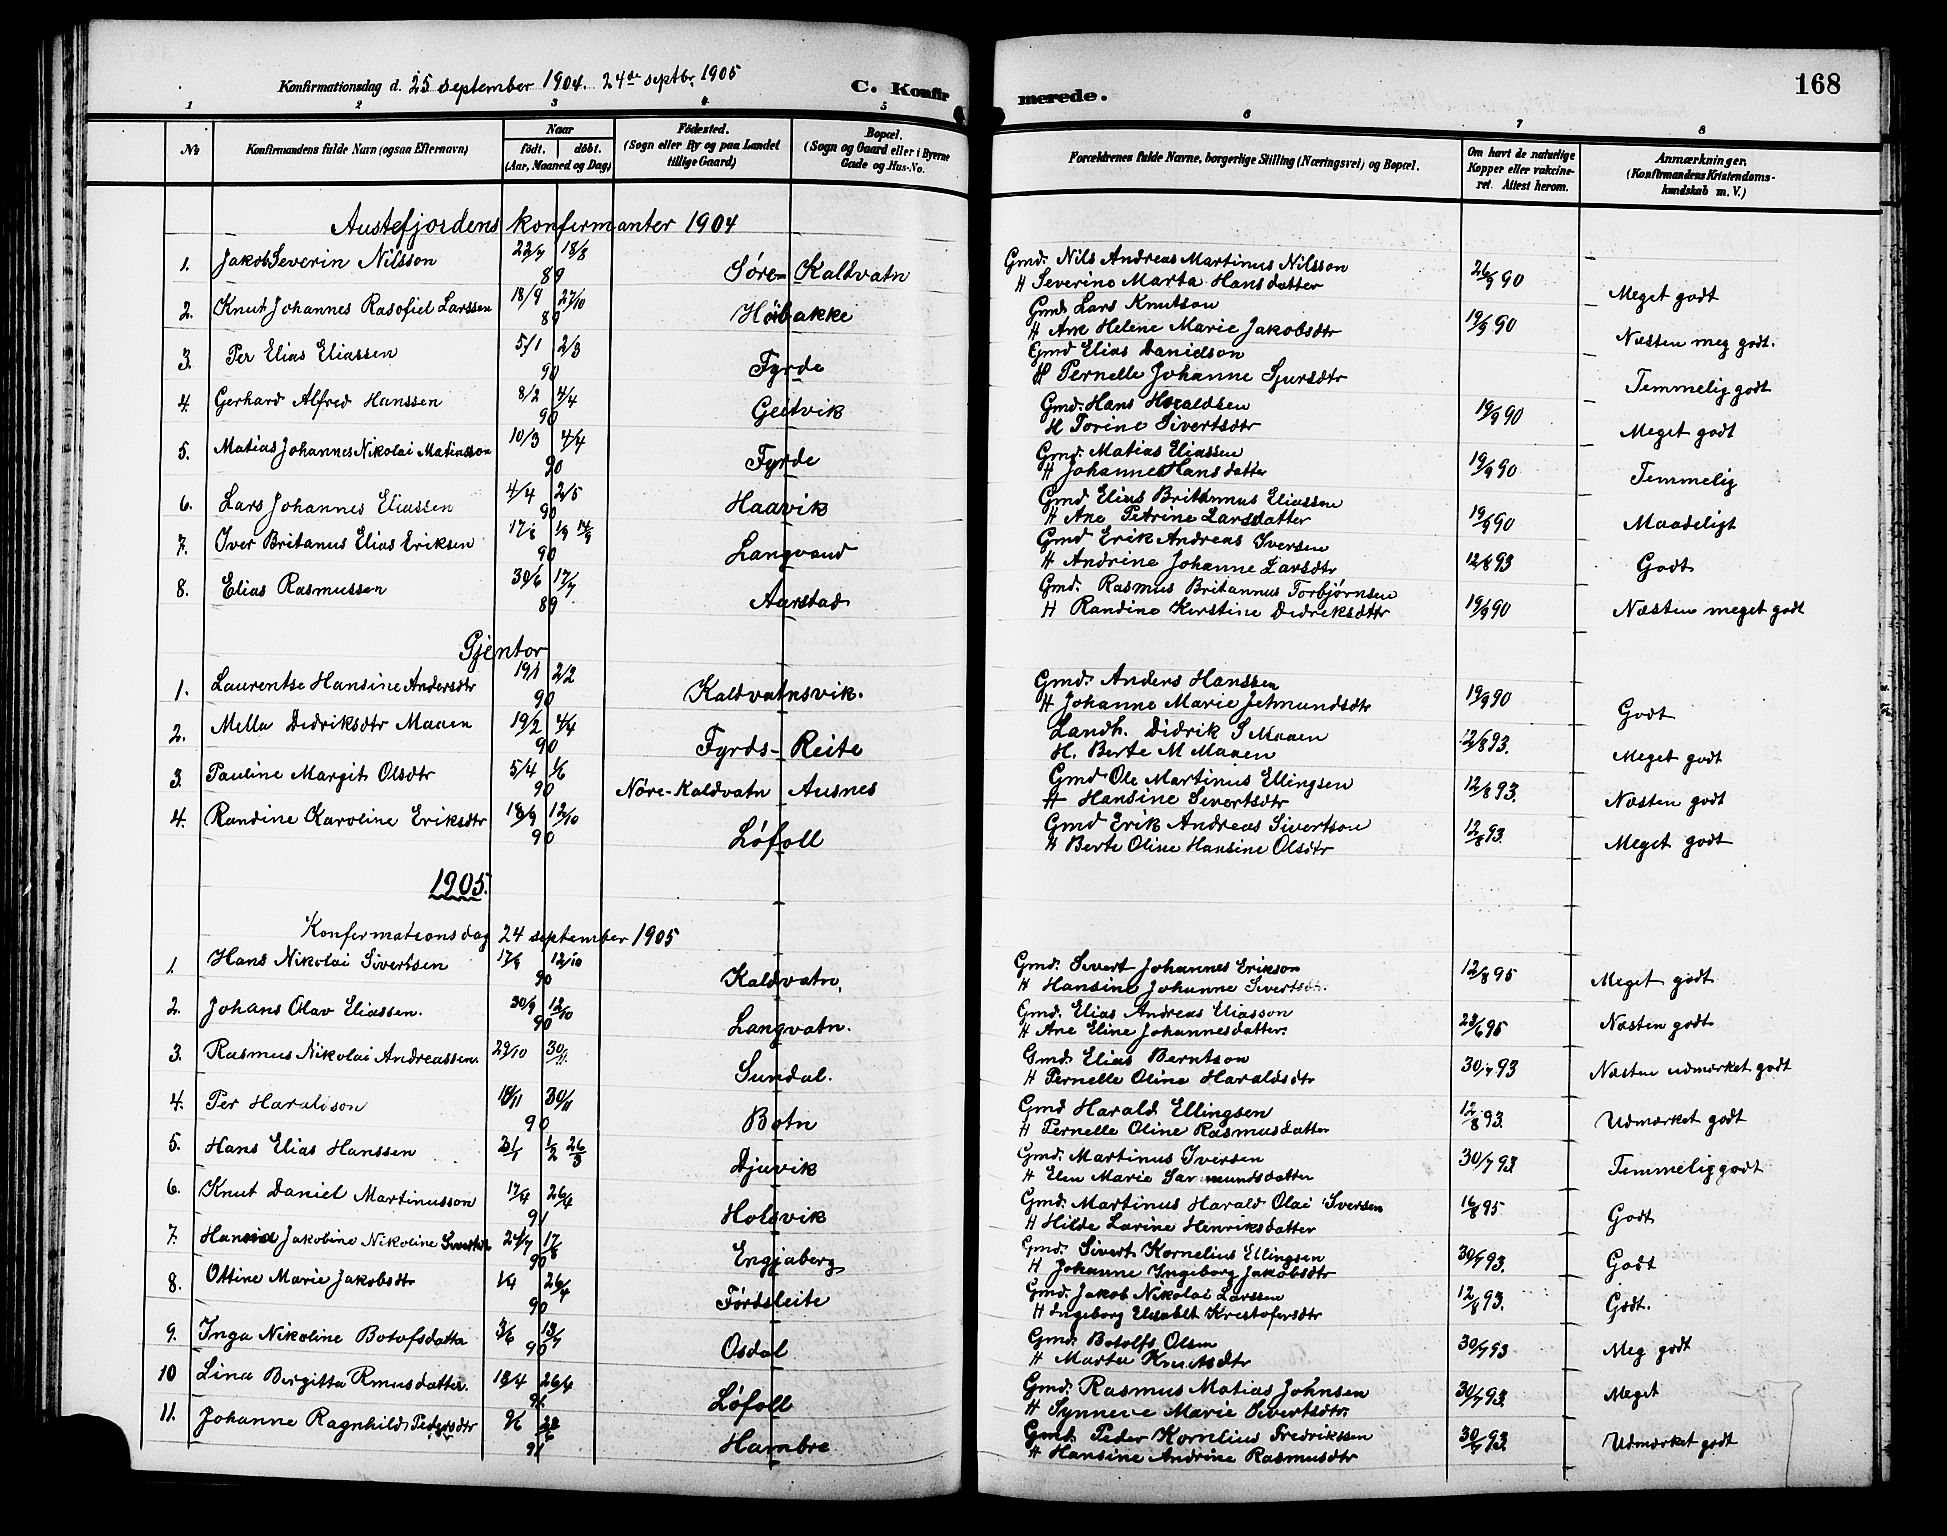 Konfirmationsdag d. 25 september 1904. 24de septbr. 1905
C. Konfirmerede.
168
1 2 3 4 5 6 7 8
No
Konfirmandens fulde Navn (ogsaa Efternavn)
Naar
født. døbt.
(Aar, Maaned og Dag)
Fødested.
(Sogn eller By og paa Landet
tillige Gaard)
Bopæl.
(Sogn og Gaard eller i Byerne
Gade og Hus-No.
Forældrenes fulde Navne, borgerlige Stilling (Næringsvei) og Bopæl.
Om havt de naturlige
Kopper eller vakcine-
ret. Attest herom.
Anmærkninger.
(Konfirmandens Kristendoms-
kundskab m. V.)
Austefjordens konfermanter 1904
1. Jakob Severin Nilsson 22/7 18/8 89 Søre-Kaldvatn Gmd. Nils Andreas Martinus Nilsson
H Severine Marta Hansdatter 26/9 90 Meget godt
2. Knut Johannes Rasofiel Larssen 18/9 27/10 89 Høibakke Gmd. Lars Knutson
H Ane Helene Marie Jakobsdtr 19/9 90 Næsten meg godt.
3. Per Elias Eliassen 5/1 2/3 90 Fyrde Gmd Elias Danielson
H Pernelle Johanne Sjursdtr Temmelig godt
4. Gerhard Alfred Hanssen 8/2 4/4 90 Geitvik Gmd. Hans Haraldsen
H Torine Sivertsdtr 19/9 90 Meget godt
5. Matias Johannes Nikolai Matiasson 10/3 4/4 90 Fyrde Gmd. Matias Eliassen
H Johanne Hansdatter 19/9 90 Temmelig
6. Lars Johannes Eliassen 4/4 2/5 90 Haavik Gmd Elias Britannus Eliassen
H Ane Petrine Larsdatter 19/9 90 Maadeligt
7. Iver Britanus Elias Eriksen 90 Langvand Gmd Erik Andreas Iversen
H Andrine Johanne Larsdtr 12/8 93 Godt
8. Elias Rasmussen 30/6 17/7 89 Aarstad Gmd. Rasmus Britannus Torbjørnsen
H Randine Kerstine Didriksdttr 19/9 90 Næsten meget godt
Gjentor
1. Laurentse Hansine Andersdtr 19/1 2/2 90 Kaldvatnsvik. Gmd. Anders Hanssen
H Johanne Marie Jetmundsdtr 19/9 90 Godt
2. Mella Didriksdtr Maaen 19/2 4/4 90 Fyrds-Reite Landh. Didrik S Maaen
H. Berte M Maaen 12/8 93. Meget godt
3. Pauline Margit Olsdtr 5/4 1/6 90 Nöre-Kaldvatn Ausnes Gmd Ole Martinus Ellingsen
H Hansine Sivertsdtr 12/8 93. Næsten godt
4. Randine Karoline Eriksdtr 18/9 12/10 90 Løfoll Gmd Erik Andreas Sivertson
H Berte Oline Hansine Olsdtr 12/8 93. Meget godt
1905.
Konfermationsdag 24 september 1905
1. Hans Nikolai Sivertsen 17/9 12/10 90 Kaldvatn. Gmd. Sivert Johannes Erikson
H Hansine Johanne Sivertsdt. 12/8 95 Meget godt
2. Johans Olav Eliassen. 30/9 12/10 90 Langvatn. Gmd. Elias Andreas Eliasson
H Ane Eline Johannesdatter. 23/6 95 Næsten godt
3. Rasmus Nikolai Andreassen. 29/10 30/11. Sundal. Gmd. Elias Berntson
H Pernelle Oline Haraldsdtr 30/7 93 Næsten udmærket godt
4. Per Haraldson 30/11 90 Botn Gmd Harald Ellingsen
H Pernelle Oline Rasmusdatter 12/8 93. Udmærket godt
5. Hans Elias Hanssen 1/2 26/3 Djuvik Gmd. Martinus Iversen
H Elen Marie Sammundsdatter 30/7 93 Temmelig godt
6. Knut Daniel Martinusson 17/4 26/4 91 Holsvik Gmd. Martinus Harald Olai Iversen
H Hilde Larine Henriksdatter 16/8 95 Godt
7. Jakobine Nikoline 24/7 17/8 90 Engjaberg Gmd. Sivert Kornelius Ellingsen
H Johanne Ingeborg Jakobsdtr 30/7 93. Godt
8. Ottine Marie Jakobsdtr 1/4 26/4 90 Førdsleite Gmd. Jakob Nikolai Larssen
H Ingeborg Elisabet Kristofersdtr 12/8 93. Godt.
9. Inga Nikoline Botofsdatter 3/6 13/7 90 Osdal Gmd. Botolfs Olsen
H Marta Knutsdtr 30/7 93 Meg godt
10 Lina Birgitta Rmusdatter. 18/4 26/4 91 Løfoll Gmd. Rasmus Matias Johnsen
H Synneve Marie Sivertsdtr. 30/7 93. Meget
11. Johanne Ragnhild Pedersdtr 91 Hambre Gmd. Peder Kornelius Fredrikssen
H Hansine Andrine Rasmusdtr 30/7 93. Udmærket godt